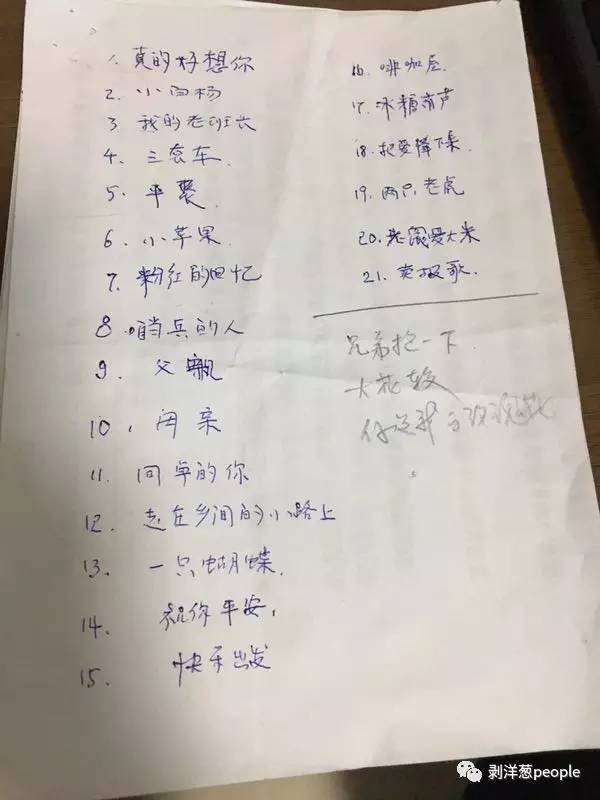 1. 真的好想你
2. 小白杨
3 我的老班长
4. 三套车.
5. 平
6. 小苹果.
7. 粉红的回忆
8. 哨兵的人
9. 父
10. 亲
11. 同卓的你
12. 走在乡间的小路上
13. 一只蝴蝶.
14. 祝你平安.
15. 快乐出发
16. 啡咖屋.
17. 冰糖
18. 把爱 下来
19. 两只老虎
20. 老鼠爱大米
21. 卖报歌.
兄弟抱一下
大花
你送我
剥洋葱people